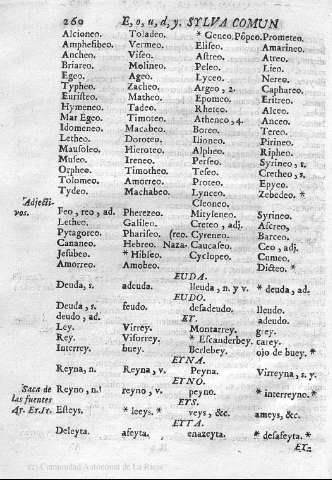 260 E, o, u, d, y. SYLVA COMUN
Alcioneo. Toladeo. * Geneo. Põpeo. Prometeo.
Amphesibeo. Vermeo. Eliseo. Amarineo.
Ancheo. Viseo. Astreo. Atreo.
Briareo. Molineo. Peleo. Lieo.
Egeo. Ageo. Lyceo. Nereo.
Typheo. Zacheo. Argeo, 2. Caphareo.
Euristeo. Matheo. Epomeo. Eritreo.
Hymeneo. Tadeo. Rheteo. Alceo.
Mar Egeo. Timoteo. Atheneo, 4. Anceo.
Idomeneo. Macabeo. Boreo. Tereo.
Letheo. Doroteo. Lioneo. Pirineo.
Mausoleo. Hieroteo. Alpheo. Ripheo.
Museo. Ireneo. Perseo. Syrineo, s.
Orpheo. Timotheo. Teseo. Cretheo, s.
Tolomeo. Amorreo. Proteo. Epyceo.
Tydeo. Machabeo. Lynceo. Zebedeo. *
Cleoneo.
Adjecti-
vos.
Feo, reo, ad. Pherezeo. Mityleneo. Syrineo.
Letheo. Galileo. Creteo, adj. Ascreo.
Pytagoreo. Phariseo. (reo. Cyreneo. Barceo.
Cananeo. Hebreo. Naza- Caucaseo. Ceo, adj.
Jesubeo. * Hibleo. Cyclopeo. Cumeo.
Amorreo. Amobeo. Dicteo. *
EUDA.
Deuda, s. adeuda. lleuda, n. y v. * deuda, ad.
EUDO.
Deudo, s. feudo. desadeudo. lleudo.
deudo, ad. adeudo.
EY.
Ley. Virrey. Montarrey. grey.
Rey. Visorrey. * Escanderbey. carey.
Interrey. buey. Berlebey. ojo de buey. *
EYNA.
Reyna, n. Reyna, v. Peyna. Virreyna, s. y.
EYNO.
Saca de
las fuentes
Reyno, n. reyno, v. peyno. * interreyno. *
EYS.
Ar. Er. Ir.
Esteys. * leeys. * veys, &c. ameys, &c.
EYTA.
Deleyta. afeyta. enazeyta. * desafeyta. *
(c) Comunidad Autónoma de La Rioja